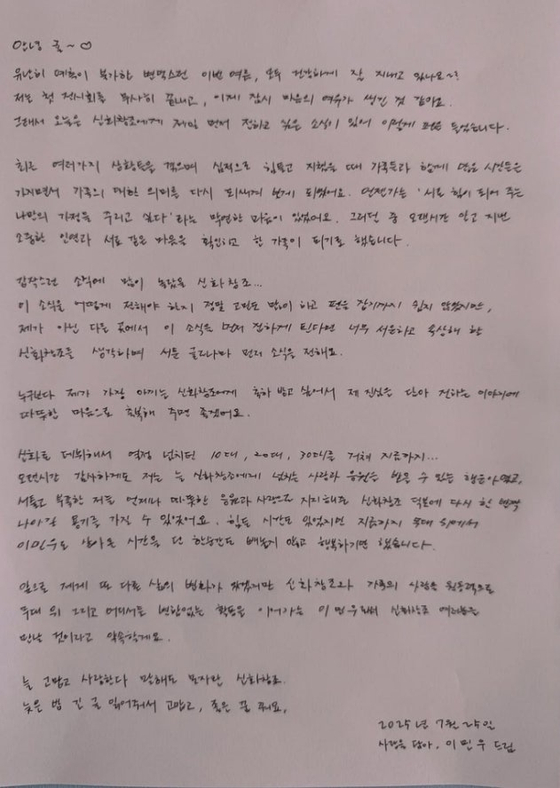 안녕 귤~♡
유난히 예측이 불가한 변덕스런 이번 여름, 모두 건강하게 잘 지내고 있나요~?
저는 첫 전시회를 무사히 끝내고, 이제 잠시 마음의 여유가 생긴 것 같아요.
그래서 오늘은 신화창조에게 제일 먼저 전하고 싶은 소식이 있어 이렇게 펜을 들었습니다.
최근 여러가지 상황들을 겪으며 심적으로 힘들고 지쳤을 때 가족들과 함께 많은 시간들을
가지면서 가족의 대한 의미를 다시 되새기게 되었어요. 언젠가는 '서로 힘이 되어 주는
나만의 가정을 꾸리고 싶다'라는 막연한 마음이 있었어요. 그러던 중 오랜시간 알고 지낸
소중한 인연과 서로 같은 마음을 확인하고 한 가족이 되기로 했습니다.
갑작스런 소식에 많이 놀랐을 신화창조...
이 소식을 어떻게 전해야 하지 정말 고민도 많이 하고 펜을 잡기까지 쉽지 않았지만,
제가 아닌 다른 곳에서 이 소식을 먼저 접하게 된다면 너무 서운하고 속상해 할
신화창조를 생각하며 서툰 글로나마 먼저 소식을 전해요.
누구보다 제가 가장 아끼는 신화창조에게 축하 받고 싶어서 제 진심을 담아 전하는 이야기에
따뜻한 마음으로 축복해 주면 좋겠어요.
신화로 데뷔해서 열정 넘치던 10대, 20대, 30대를 거쳐 지금까지...
오랜시간 감사하게도 저는 늘 신화창조에게 넘치는 사랑과 응원을 받을 수 있는 행운아였고,
서툴고 부족한 저를 언제나 따뜻한 응원과 사랑으로 지지해주는 신화창조 덕분에 다시 한 번 더
나아갈 용기를 가질 수 있었어요. 힘든 시간도 있었지만 지금까지 무대 위에서
이민우로 살아온 시간은 단 한순간도 빼놓지 않고 행복하기만 했습니다.
앞으로 제게 또 다른 삶의 변화가 생겼지만 신화창조와 가족의 사랑을 원동력으로
무대 위 그리고 어디서든 변함없는 활동을 이어가는 이민우로써 신화창조 여러분을
만날 것이라고 약속할게요.
늘 고맙고 사랑한다 말해도 모자란 신화창조.
늦은 밤 긴 글 읽어줘서 고맙고, 좋은 꿈 꿔요.
2025년 7월 25일
사랑을 담아, 이민우 드림